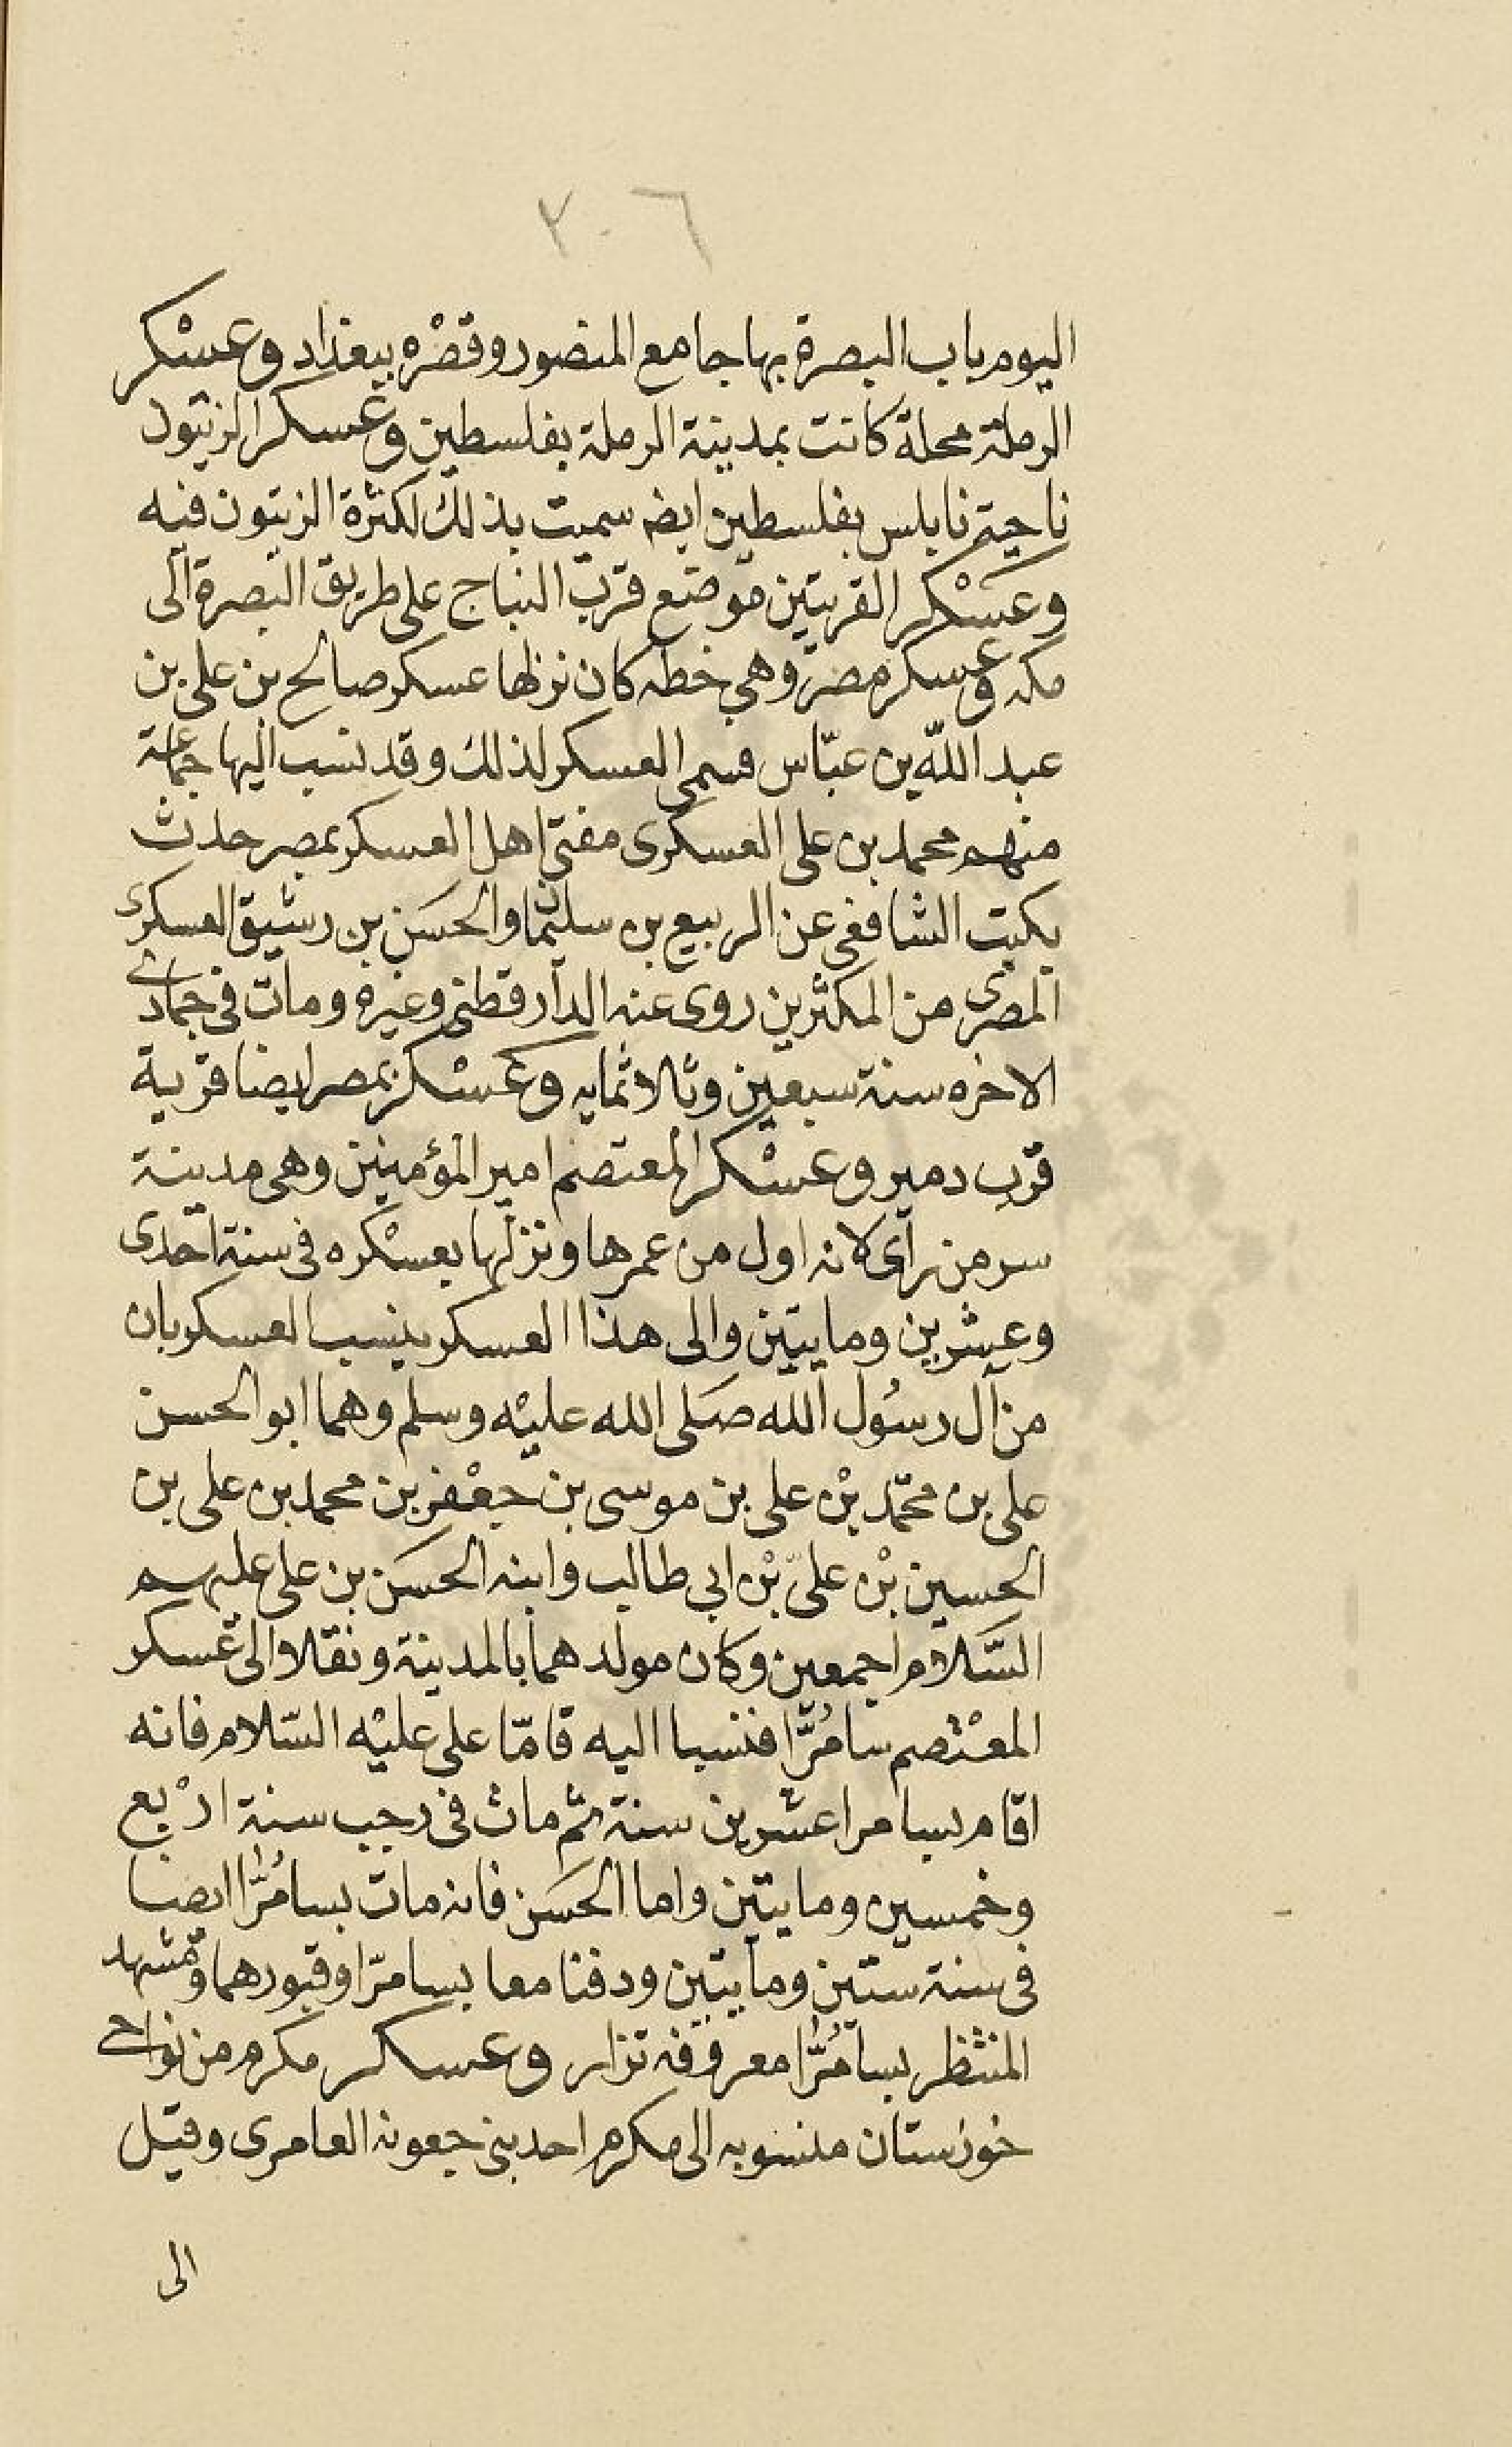 ٢٠٦
اليوم باب البصرة بها جامع المنصور وقصْره ببغداد وعسْكر
الرملة محلة كانت بمدينة الرملة بفلسطين وعسكر الزيتول
ناحية نابلس بفلسطين ايضا سميت بذلك لكثرة الزيتون فيه
وعسْكر القريتين موضع قرب النباج على طريق البصرة الى
مكه وعسكر مصر وهي خطه كان نزلها عسكر صالح بن على بن
عبد الله بن عبّاس فسمى العسكر لذلك وقد نسب اليها جماعة
منهم محمد بن على العسكرى مفتى اهل العسكر بمصر حدث
بكتب الشافعى عن الربيع بن سليمان والحسَن بن رشيق العسكرى
المصرى من المكثرين روى عنه الدارقطنى وغيره ومات فى جمادى
الاخره سنة سبعين وثلاثمايه وعسْكر بمصر ايضا قرية
قرب دمير وعسْكر المعتصم امير المؤمنين وهى مدينة
سر من راى لانه اول من عمرها ونزلها بعسْكره فى سنة احدى
وعشرين ومايتين والى هذا العسكر ينسب العسكريان
من آل رسُول الله صَلى الله عليْه وسلم وهما ابو الحسن
على بن محمّد بْن على بن موسى بن جعْفر بن محمد بن على بن
الحسين بْن علىّ بْن ابى طالب وابنه الحسَن بن على عليهم
السّلام اجمعين وكان مولدهما بالمدينة ونقلا الى عسكر
المعْتصم سامُرَّا فنسبا اليه فامّا على عليْه السّلام فانه
اقام بسامرا عشرين سنة ثم مات فى رجب سنة ارْبع
وخمسين ومايتين واما الحَسَن فانه مات بسامُرَّا ايضا
فى سنة ستين ومايتين ودفنا معا بسامرّا وقبورهما ومشهد
المنتظر بسامُرَّا معروفه تزار وعسكر مكرم من نواحى
خوزستان منسوبه الى مكرم احد بنى جعونه العامرى وقيل
الى